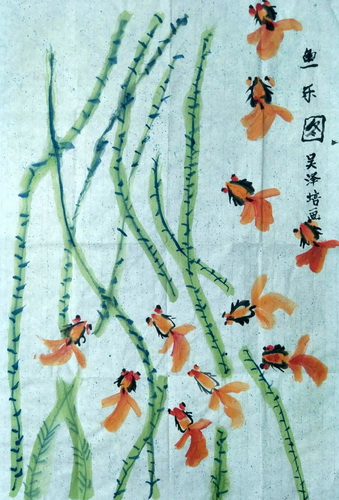 鱼乐图
吴泽培画